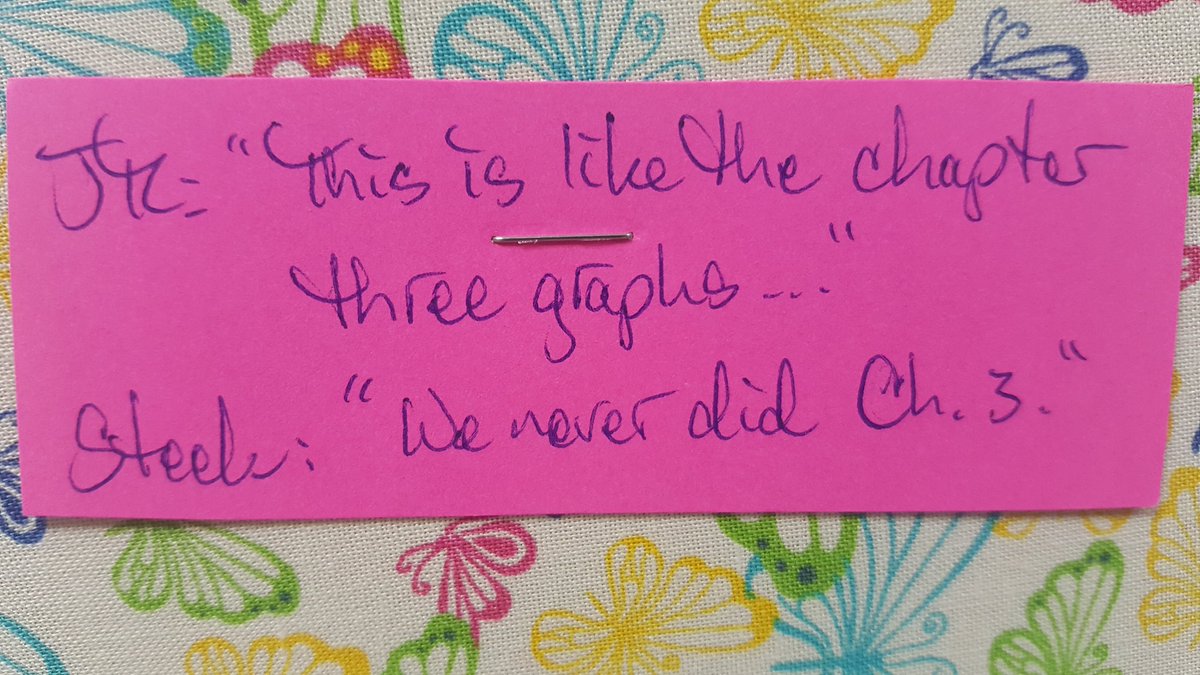 JK: "This is like the chapter
three graphs..."
Steele: "We never did Ch. 3."